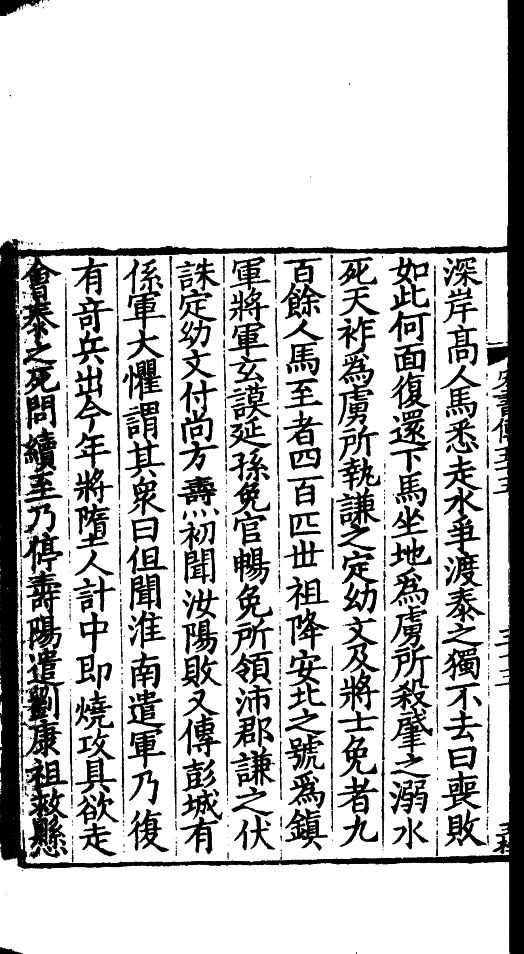 深岸髙人馬悉走水爭渡泰之獨不去曰喪敗
如此何面復還下馬坐地爲虜所殺肇之溺水
死天祚爲虜所執謙之定幼文及將士免者九
百餘人馬至者四百匹世祖降安北之號爲鎮
軍將軍玄謨延孫免官暢免所領沛郡謙之伏
誅定幼文付尚方燾初聞汝陽敗又傳彭城有
係軍大懼謂其衆曰但聞淮南遣軍乃復
有竒兵出今年將隋圡人計中即燒攻具欲走
會泰之死問續至乃停壽陽遣劉康祖救懸